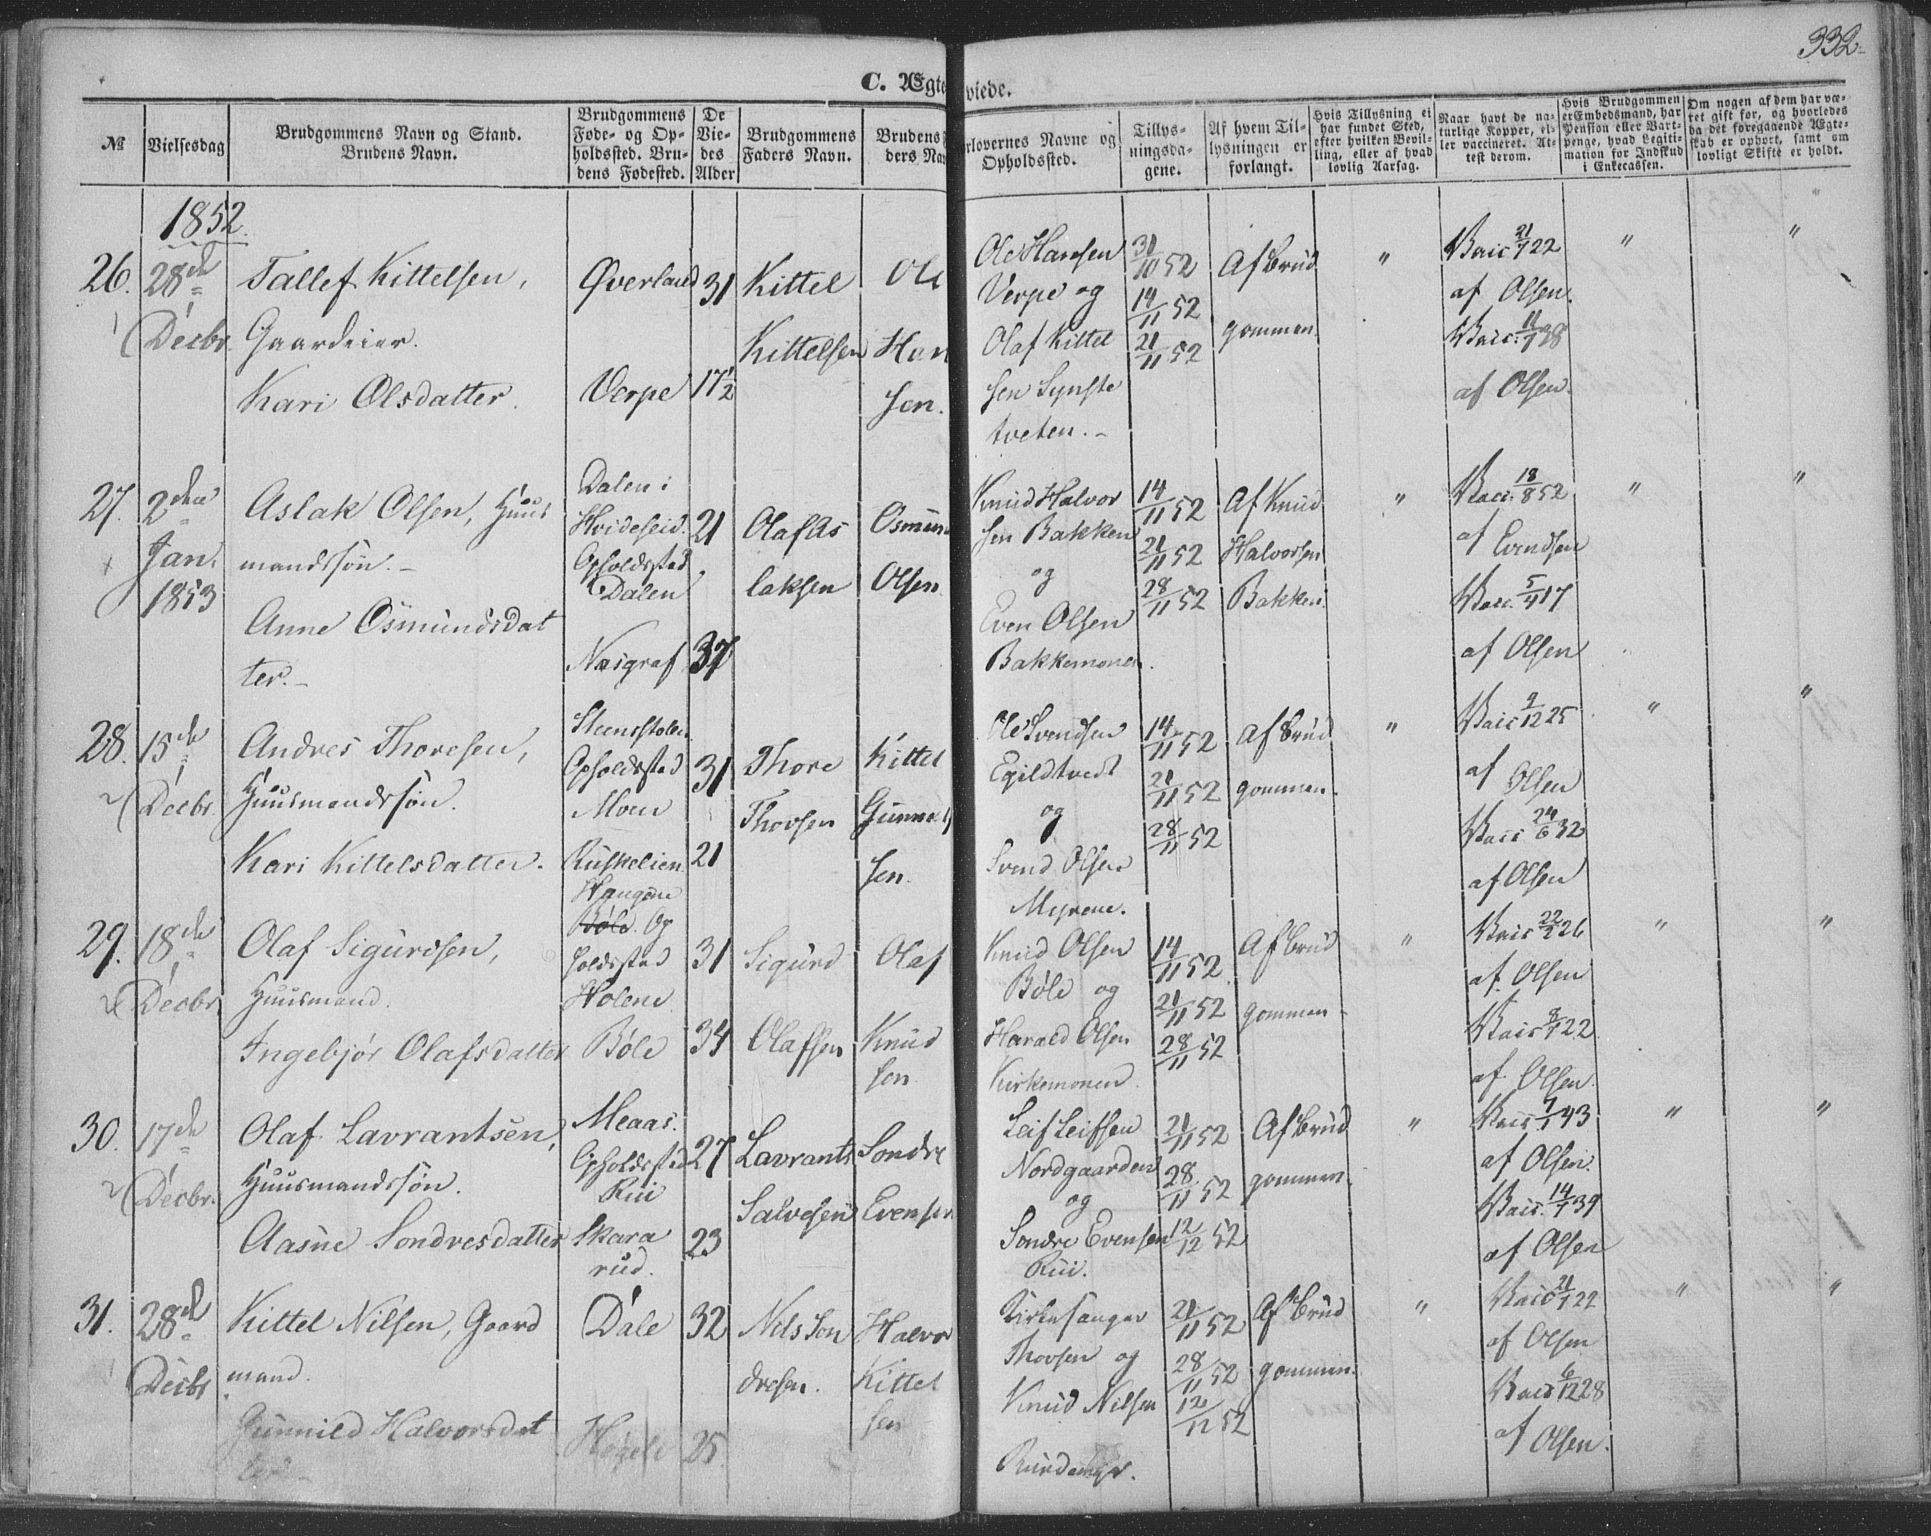 332
C. Ægteviede.
№
Vielsesdag
Brudgommens Navn og Stand.
Brudens Navn.
Brudgommens
Føde- og Op-
holdssted. Bru-
dens Fødested.
De
Vie-
des
Alder
Brudgommens
Faders Navn.
Brudens
ders Nav
rlovernes Navne og
Opholdssted.
Tillys-
ningsda-
gene.
Af hvem Til-
lysningen er
forlangt.
Hvis Tillysning ei
har fundet Sted,
efter hvilken Bevil-
ling, eller af hvad
lovlig Aarsag.
Naar havt de na-
turlige Kopper, el-
ler vaccineret. At-
test derom.
Hvis Brudgommen
er Embedsmand, har
Pension eller Vart-
penge, hvad Legiti-
mation for Indskud
i Enkecassen.
Om nogen af dem har væ-
ret gift før, og hvorledes
da det foregaaende Ægte-
skab er ophørt, samt om
lovligt Skifte er holdt.
1852.
26.
28de
Decbr.
Tallef Kittelsen,
Gaardeier.
Kari Olsdatter.
Øverland
Verpe
31
17½
Kittel
Kittelsen
Ole
Han
sen.
Ole Hansen
Verpe og
Olaf Kittel
sen Synste
tveten.-
31/10 52
14/11 52
21/11 52
Af Brud
gommen.
"
Vacc 21/7 22
af Olsen.
Vacc. 11/7 38
af Olsen.
"
"
27.
2den
Jan.
1853
Aslak Olsen, Huus
mandssøn.-
Anne Osmundsdat
ter.-
Dalen i
Hvideseid.
Opholdssted
Dalen
Næsgraf
21
37
Olaf As
laksen
Osmun
Olsen
Knud Halvor
sen Bakken
og
Even Olsen
Bakkemonen.
14/11 52
21/11 52
28/11 52
Af Knud
Halvorsen
Bakken.
"
Vacc. 18/8 52
af Evendsen
Vacc. 5/4 17
af Olsen
"
"
28.
15de
Decbr.
Andres Thoresen,
Huusmandssøn.
Kari Kittelsdatter.
Steensstolen
Opholdssted
Moen
Ruskelien
31
21
Thore
Thovsen
Kittel
Gunnuf
sen.
Ole Svendsen
Egildtvedt
og
Svend Olsen
Myrene.
14/11 52
21/11 52
28/11 52
Af Brud
gommen.
"
Vacc 9/12 25
af Olsen
Vacc 24/6 32
af Olsen
"
"
29.
18de
Decbr
Olaf Sigurdsen,
Huusmand.
Ingebjør Olafsdatter
Haugene
Bøle. Op
holdssted
Holene
Bøle
31
34
Sigurd
Olafsen
Olaf
Knud
sen
Knud Olsen
Bøle og
Harald Olsen
Kirkemonen.
14/11 52
21/11 52
28/11 52
Af Brud
gommen-
"
Vacc 22/2 26
af Olsen
Vacc 8/7 22
af Olsen.
"
"
30.
17de
Decbr.
Olaf Lavrantsen,
Huusmandssøn.
Aasne Sondresdatter
Meaas.
Opholdssted
Rui
Skara
rud.
27
23
Lavrants
Salvesen
Sondre
Evensen
Leif Leifsen
Nordgaarden
og
Sondre Evensen
Rui.
21/11 52
28/11 52
12/12 52
Af Brud
gommen.
"
Vacc 7/7 43
af Olsen.
Vacc. 14/7 39
af Olsen
"
"
31.
28de
Decbr
Kittel Nilsen, Gaard
mand.
Gunnild Halvorsdat
ter-
Dale
Høgeli
32
25
Nils Son
dresen.
Halvor
Kittel
sen
Kirkesanger
Thovsen og
Knud Nilsen
Ruudemyr.
21/11 52
28/11 52
12/12 52
Af Brud
gommen.
"
Vacc 21/7 22
af Olsen
Vacc 6/12 28
af Olsen.
"
"